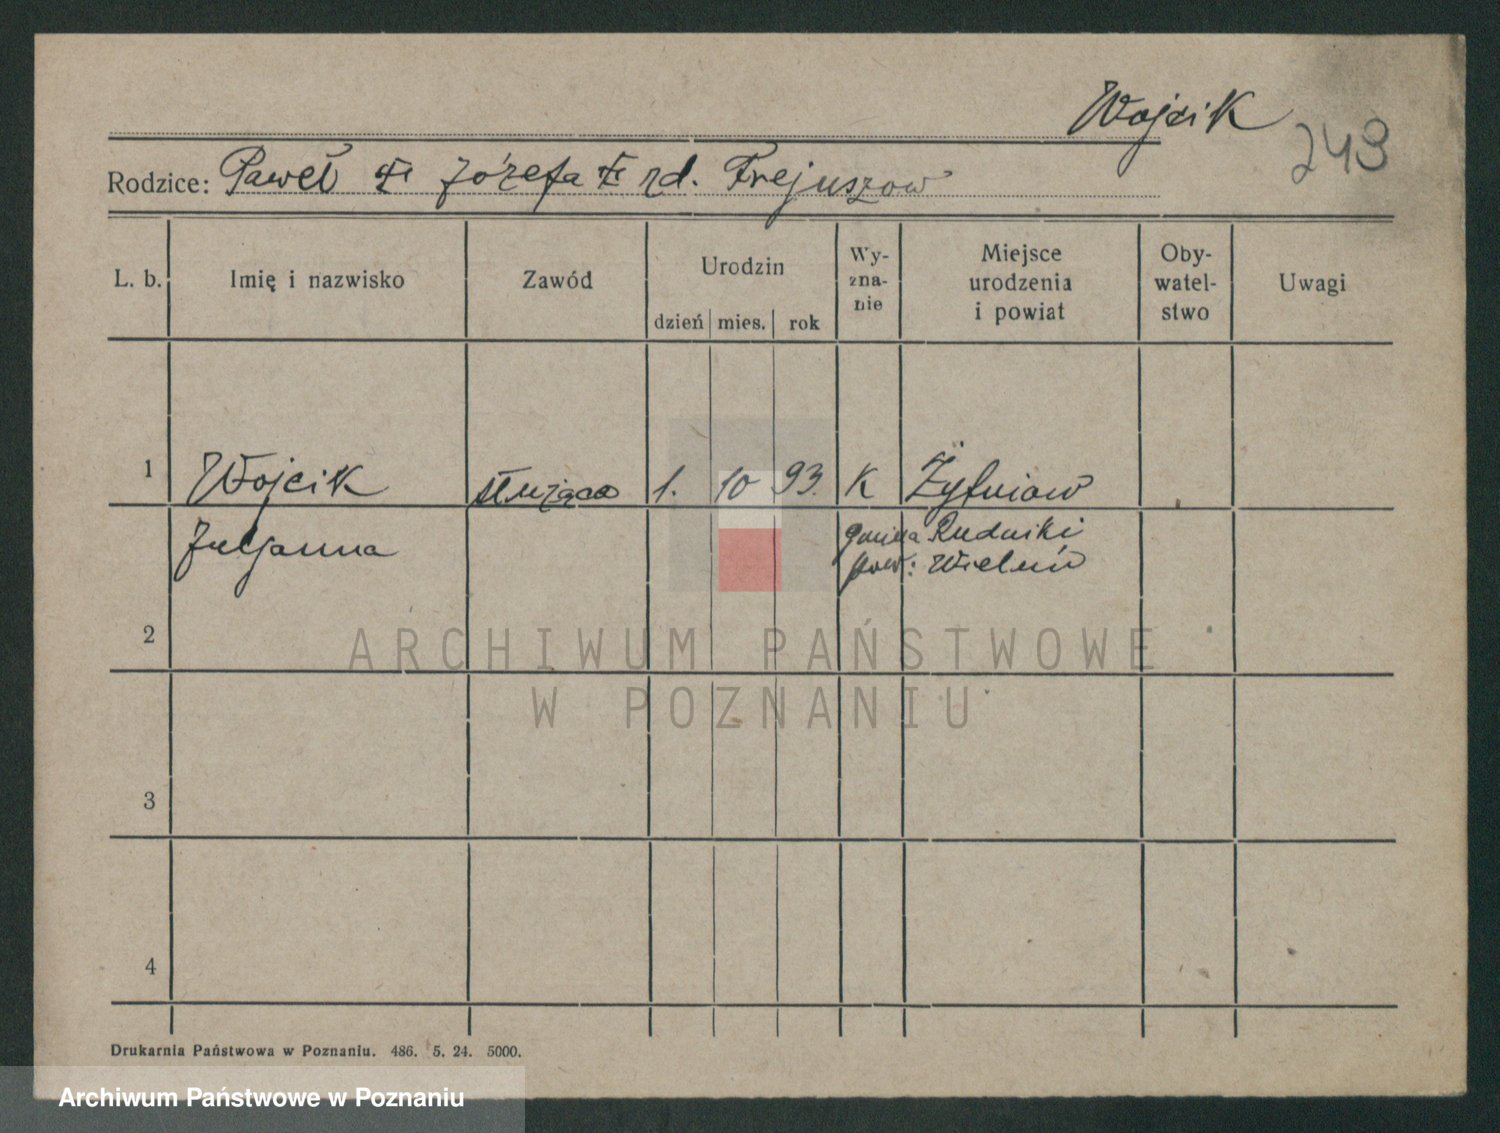 Wojcik
243
Rodzice: Paweł Józefa rd. Frejuszow
L. b. Imię i nazwisko Zawód Urodzin dzień mies. rok Wy-zna-nie Miejsce urodzenia i powiat Oby-watel-stwo Uwagi
1 Wojcik służąca 1. 10 93. K Żytniow
Juljanna gmina Rudniki
pow: Wieluń
2
ARCHIWUM PAŃSTWOWE
W POZNANIU
3
4
Drukarnia Państwowa w Poznaniu. 486. 5. 24. 5000.
Archiwum Państwowe w Poznaniu